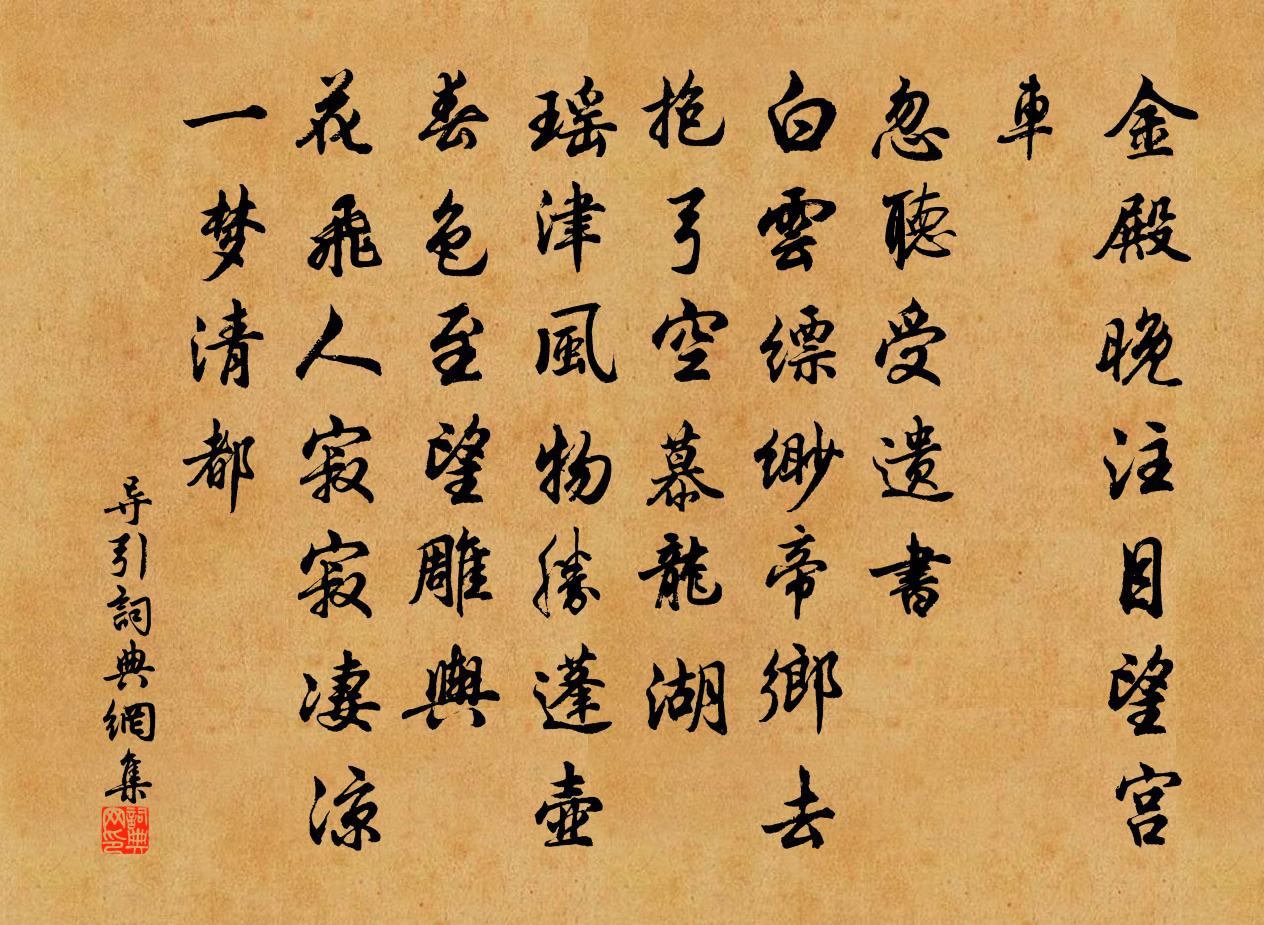 金殿晚注目望宫
車
忽聽受遗書
白雲缥缈帝鄉去
抱弓空慕龍湖
瑶津風物勝蓬壺
春色至望雕輿
花飛人寂寂凄涼
一梦清都
导引詞典網集
詞典网印